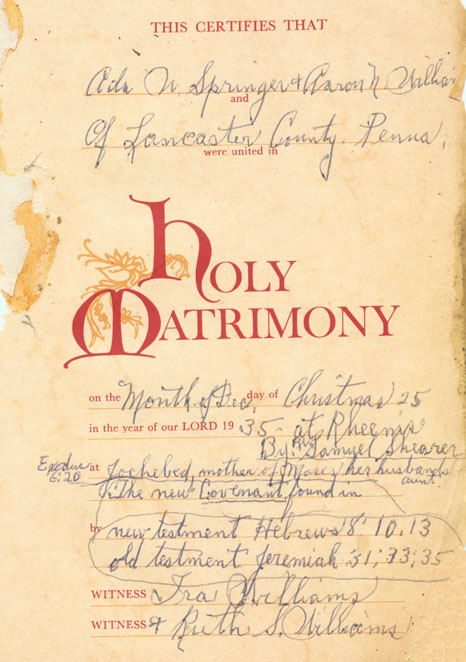 THIS CERTIFIES THAT
Ada W. Springer & Aaron N Williams
and
Of Lancaster County. Penna.
were united in
HOLY
MATRIMONY
on the Month of Dec, day of Christmas 25
in the year of our LORD 19 35 - at Rheems
By Samuel Shearer
Exodus 6:20
at Jochebed, mother of Moses, her husbands aunt
The new Covenant, found in
by new testment Hebrews 8: 10,13
old testment Jeremiah 31; 33; 35
WITNESS Ira Williams
WITNESS & Ruth S. Williams